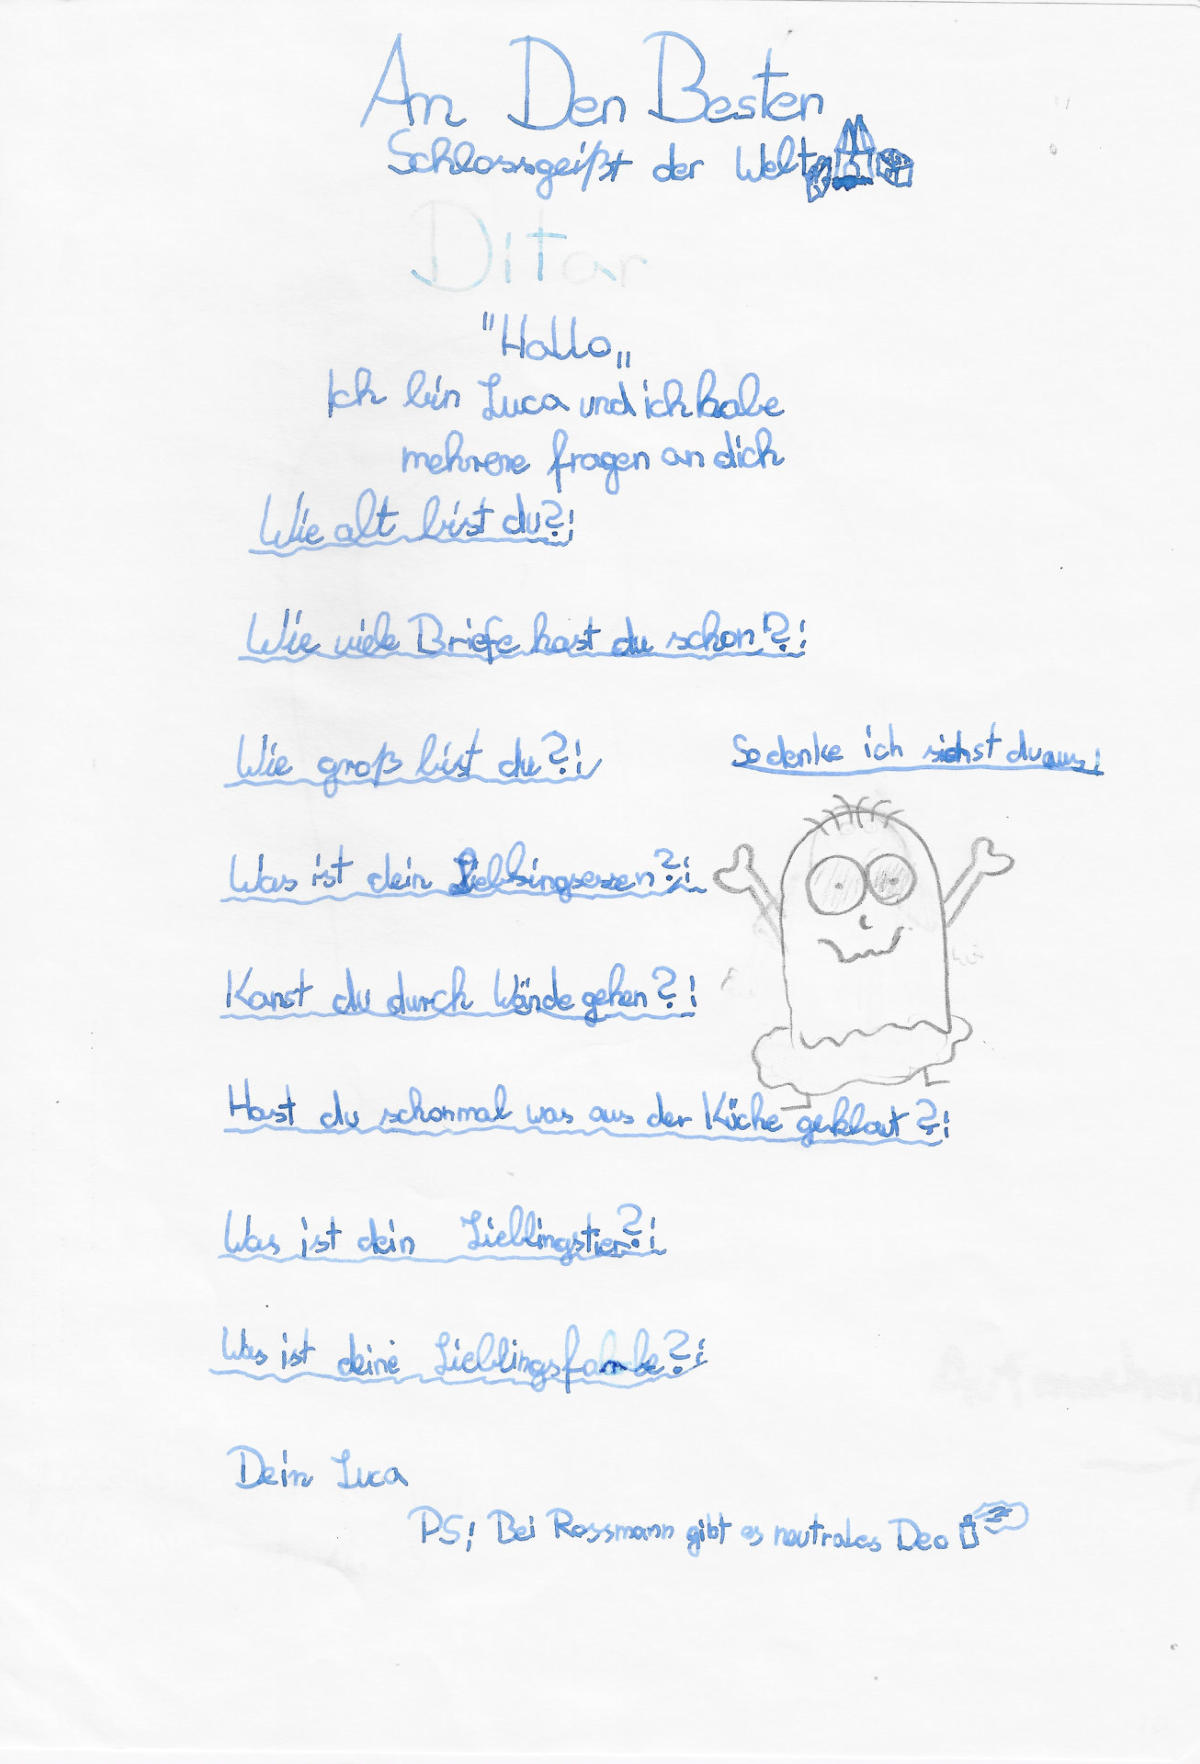 An Den Besten
Schlossgeißt der Welt
Ditar
"Hallo„
Ich bin Luca und ich habe
mehrere fragen an dich
Wie alt bist du?!
Wie viele Briefe hast du schon?!
Wie groß bist du?!
So denke ich siehst du aus!
Was ist dein Lieblingsessen?!
Kanst du durch Wände gehen?!
Hast du schonmal was aus der Küche geklaut?!
Was ist dein Lieblingstier?!
Was ist deine Lieblingsfarbe?!
Dein Luca
PS! Bei Rossmann gibt es neutrales Deo